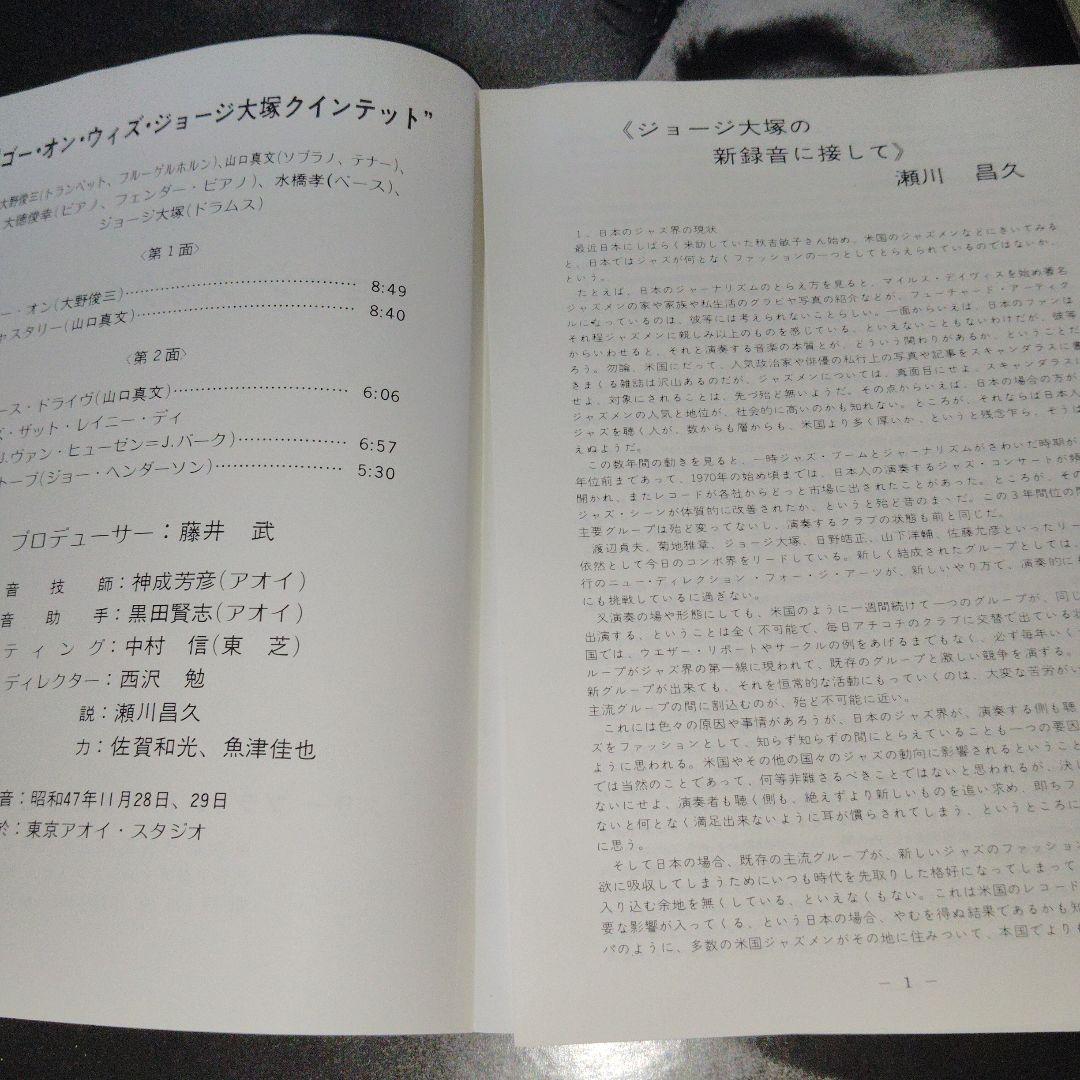 ゴー・オン・ウィズ・ジョージ大塚クインテット”
大野俊三(トランペット、フルーゲルホルン)、山口真文(ソプラノ、テナー)、
大徳俊幸(ピアノ、フェンダー・ピアノ)、水橋孝(ベース)、
ジョージ大塚(ドラムス)
〈第1面〉
ー・オン(大野俊三)…… 8:49
ャスタリー(山口真文)…… 8:40
〈第2面〉
ース・ドライヴ(山口真文)…… 6:06
ズ・ザット・レイニー・デイ
J.ヴァン・ヒューゼン=J.バーク)…… 6:57
ートープ(ジョー・ヘンダーソン)…… 5:30
プロデューサー:藤井 武
音技師:神成芳彦(アオイ)
音助手:黒田賢志(アオイ)
ティング:中村 信(東 芝)
ディレクター:西沢 勉
説:瀬川昌久
力:佐賀和光、魚津佳也
音:昭和47年11月28日、29日
於:東京アオイ・スタジオ
《ジョージ大塚の
新録音に接して》
瀬川 昌久
1.日本のジャズ界の現状
最近日本にしばらく来訪していた秋吉敏子さん始め、米国のジャズメンなどにきいてみる
と、日本ではジャズが何となくファッションの一つとしてとらえられているのではないか、
という。
たとえば、日本のジャーナリズムのとらえ方を見ると、マイルス・デイヴィスを始め著名
ジャズメンの家や家族や私生活のグラビヤ写真の紹介などが、フューチャード・アーティク
ルになっているのは、彼等には考えられないことらしい。一面からいえば、日本のファンは
それ程ジャズメンに親しみ以上のものを感じている、といえないこともないわけだが、彼等
からいわせると、それと演奏する音楽の本質とが、どういう関わりがあるか、ということだ
ろう。勿論、米国にだって、人気政治家や俳優の私行上の写真や記事をスキャンダラスに書
きまくる雑誌は沢山あるのだが、ジャズメンについては、真面目にせよ、スキャンダラスに
せよ、対象にされることは、先づ殆ど無いようだ。その点からいえば、日本の場合の方が
ジャズメンの人気と地位が、社会的に高いのかも知れない。ところが、それならば日本人
ジャズを聴く人が、数からも層からも、米国より多く厚いか、というと残念乍ら、そうは
えぬようだ。
この数年間の動きを見ると、一時ジャズ・ブームとジャーナリズムがさわいだ時期が
年位前まであって、1970年の始め頃までは、日本人の演奏するジャズ・コンサートが頻
開かれ、またレコードが各社からどっと市場に出されたことがあった。ところが、その
ジャズ・シーンが体質的に改善されたか、というと殆ど昔のまゝだ。この3年間位の間
主要グループは殆ど変ってないし、演奏するクラブの状態も前と同じだ。
渡辺貞夫、菊地雅章、ジョージ大塚、日野皓正、山下洋輔、佐藤允彦といったリー
依然として今日のコンボ界をリードしている。新しく結成されたグループとしては、
行のニュー・ディレクション・フォー・ジ・アーツが、新しいやり方で、演奏的に
にも挑戦しているに過ぎない。
又演奏の場や形態にしても、米国のように一週間続けて一つのグループが、同じ
出演する、ということは全く不可能で、毎日アチコチのクラブに交替で出ている状
国では、ウエザー・リポートやサークルの例をあげるまでもなく、必ず毎年いく
ループがジャズ界の第一線に現われて、既存のグループと激しい競争を演ずる。
新グループが出来ても、それを恒常的な活動にもっていくのは、大変な苦労がい
主流グループの間に割込むのが、殆ど不可能に近い。
これには色々の原因や事情があろうが、日本のジャズ界が、演奏する側も聴
ズをファッションとして、知らず知らずの間にとらえていることも一つの要因
ように思われる。米国やその他の国々のジャズの動向に影響されるということ
では当然のことであって、何等非難さるべきことではないと思われるが、決し
ないにせよ、演奏者も聴く側も、絶えずより新しいものを追い求め、即ちフ
ないと何となく満足出来ないように耳が慣らされてしまう、というところに
に思う。
そして日本の場合、既存の主流グループが、新しいジャズのファッション
欲に吸収してしまうためにいつも時代を先取りした格好になってしまって
入り込む余地を無くしている、といえなくもない。これは米国のレコード
要な影響が入ってくる、という日本の場合、やむを得ぬ結果であるかも知
パのように、多数の米国ジャズメンがその地に住みついて、本国でより
― 1 ―